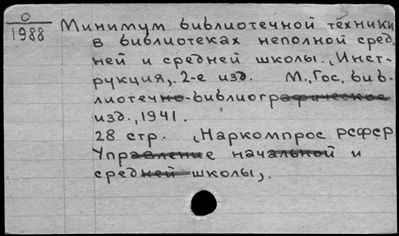 0
1988
Минимум библиотечной техники
в библиотеках неполной сред.
ней и средней школы. (Инст-
рукция). 2-е изд. М., Гос. биб-
лиотечно-библиографическое
изд., 1941.
28 стр. (Наркомпрос РСФСР
Управление начальной и
средней школы).